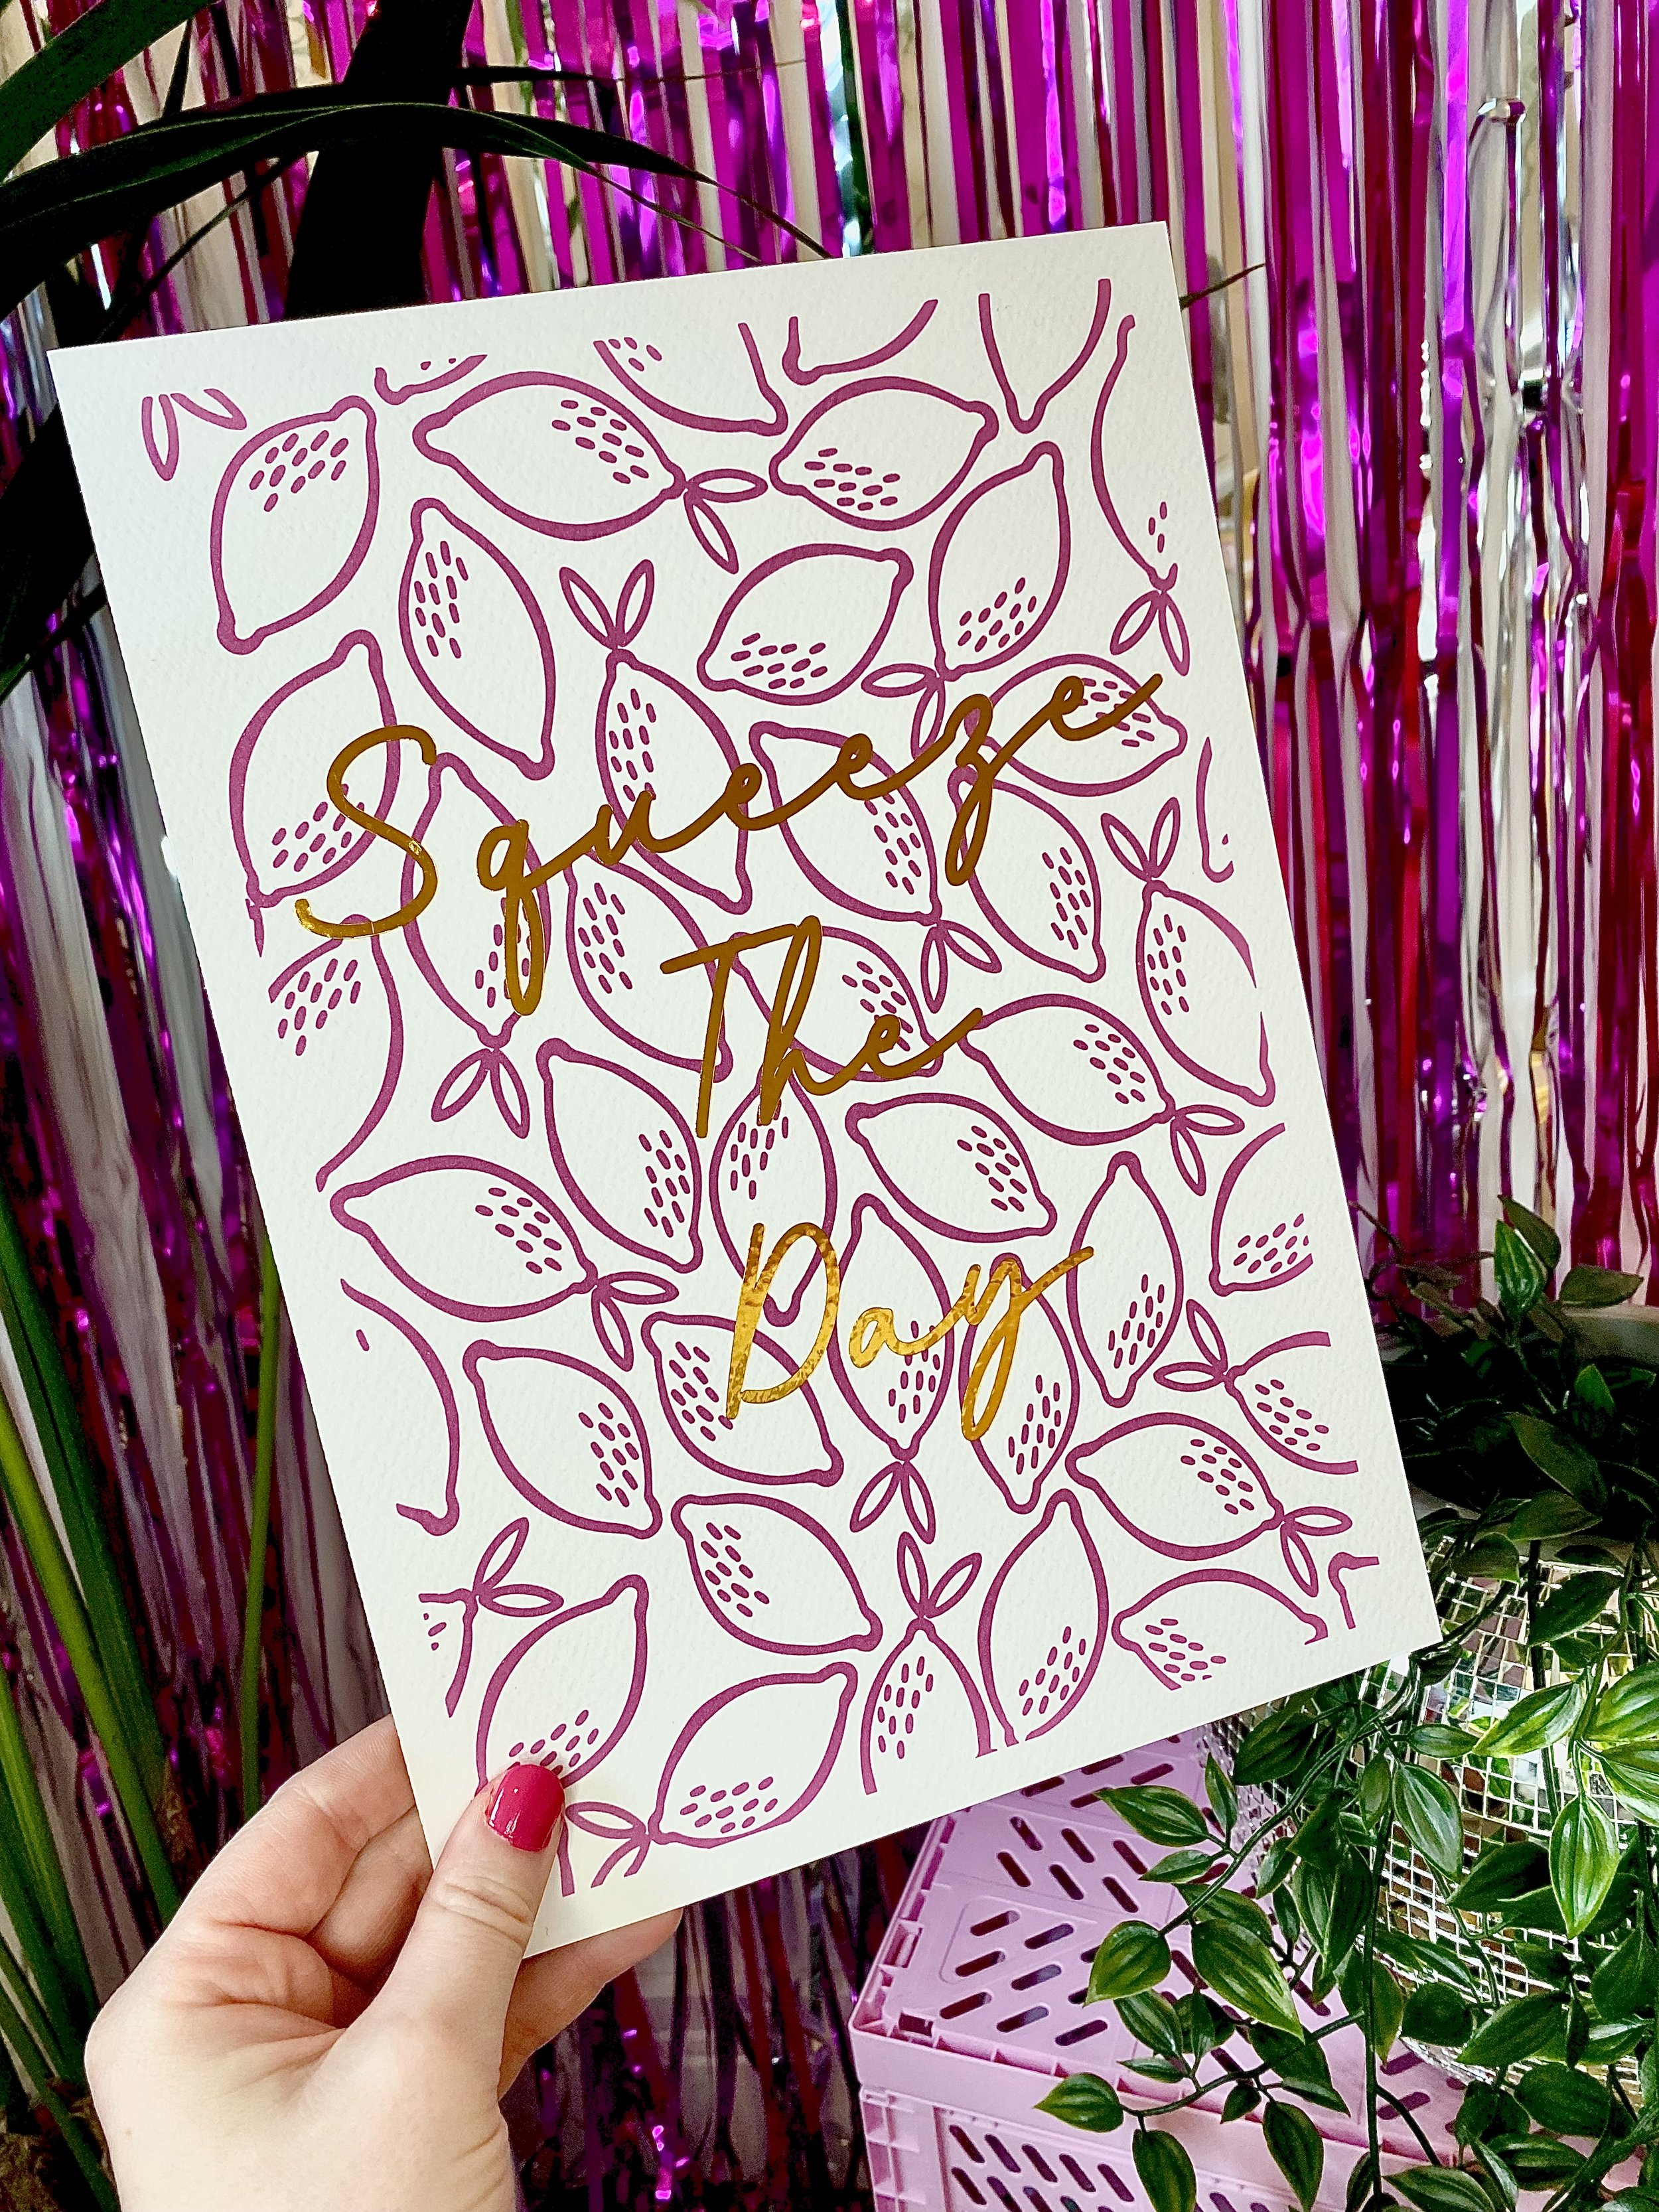 Squeeze
The
Day